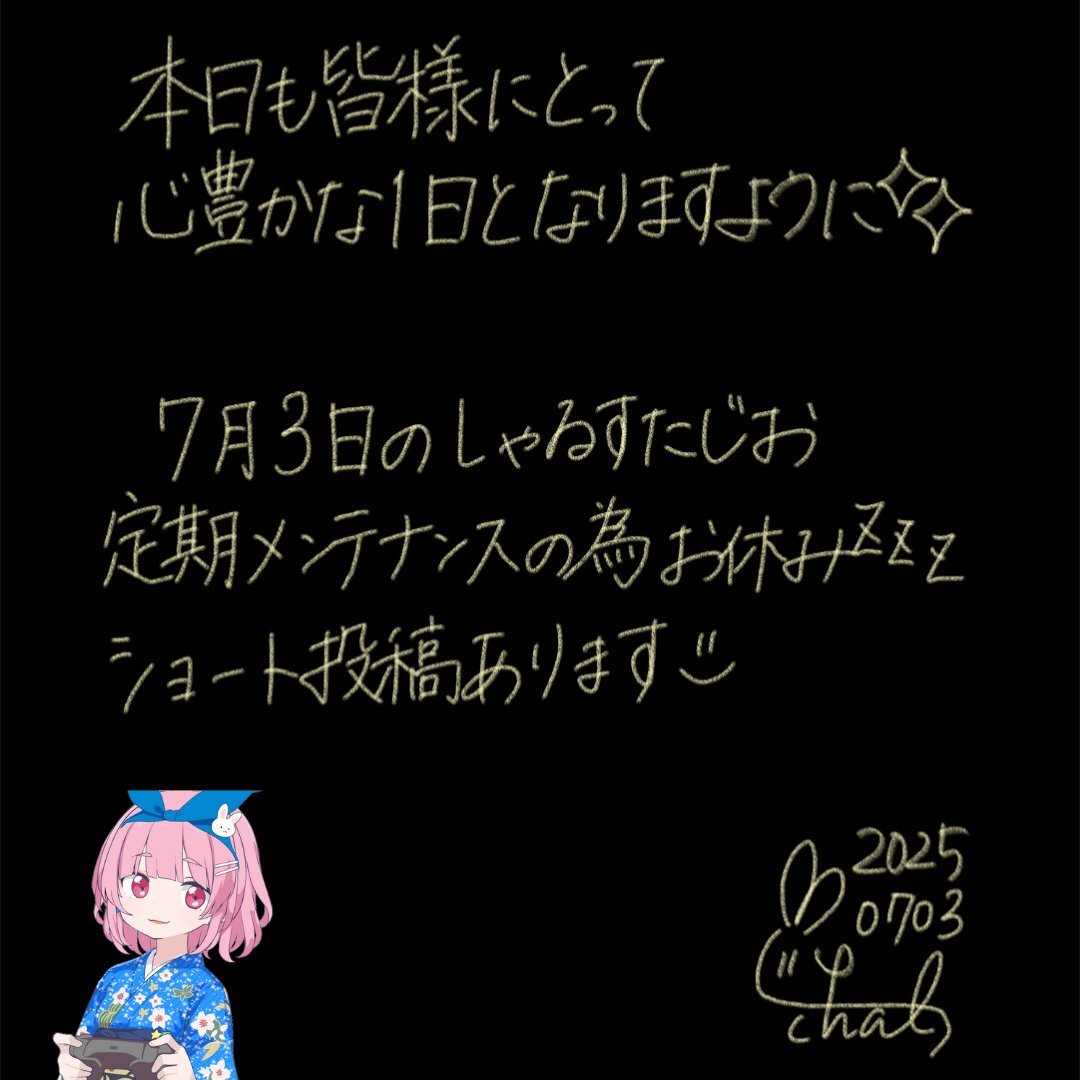 本日も皆様にとって
心豊かな1日となりますように
7月3日のしゃるすたじお
定期メンテナンスの為お休みzzz
ショート投稿あります
2025
0703